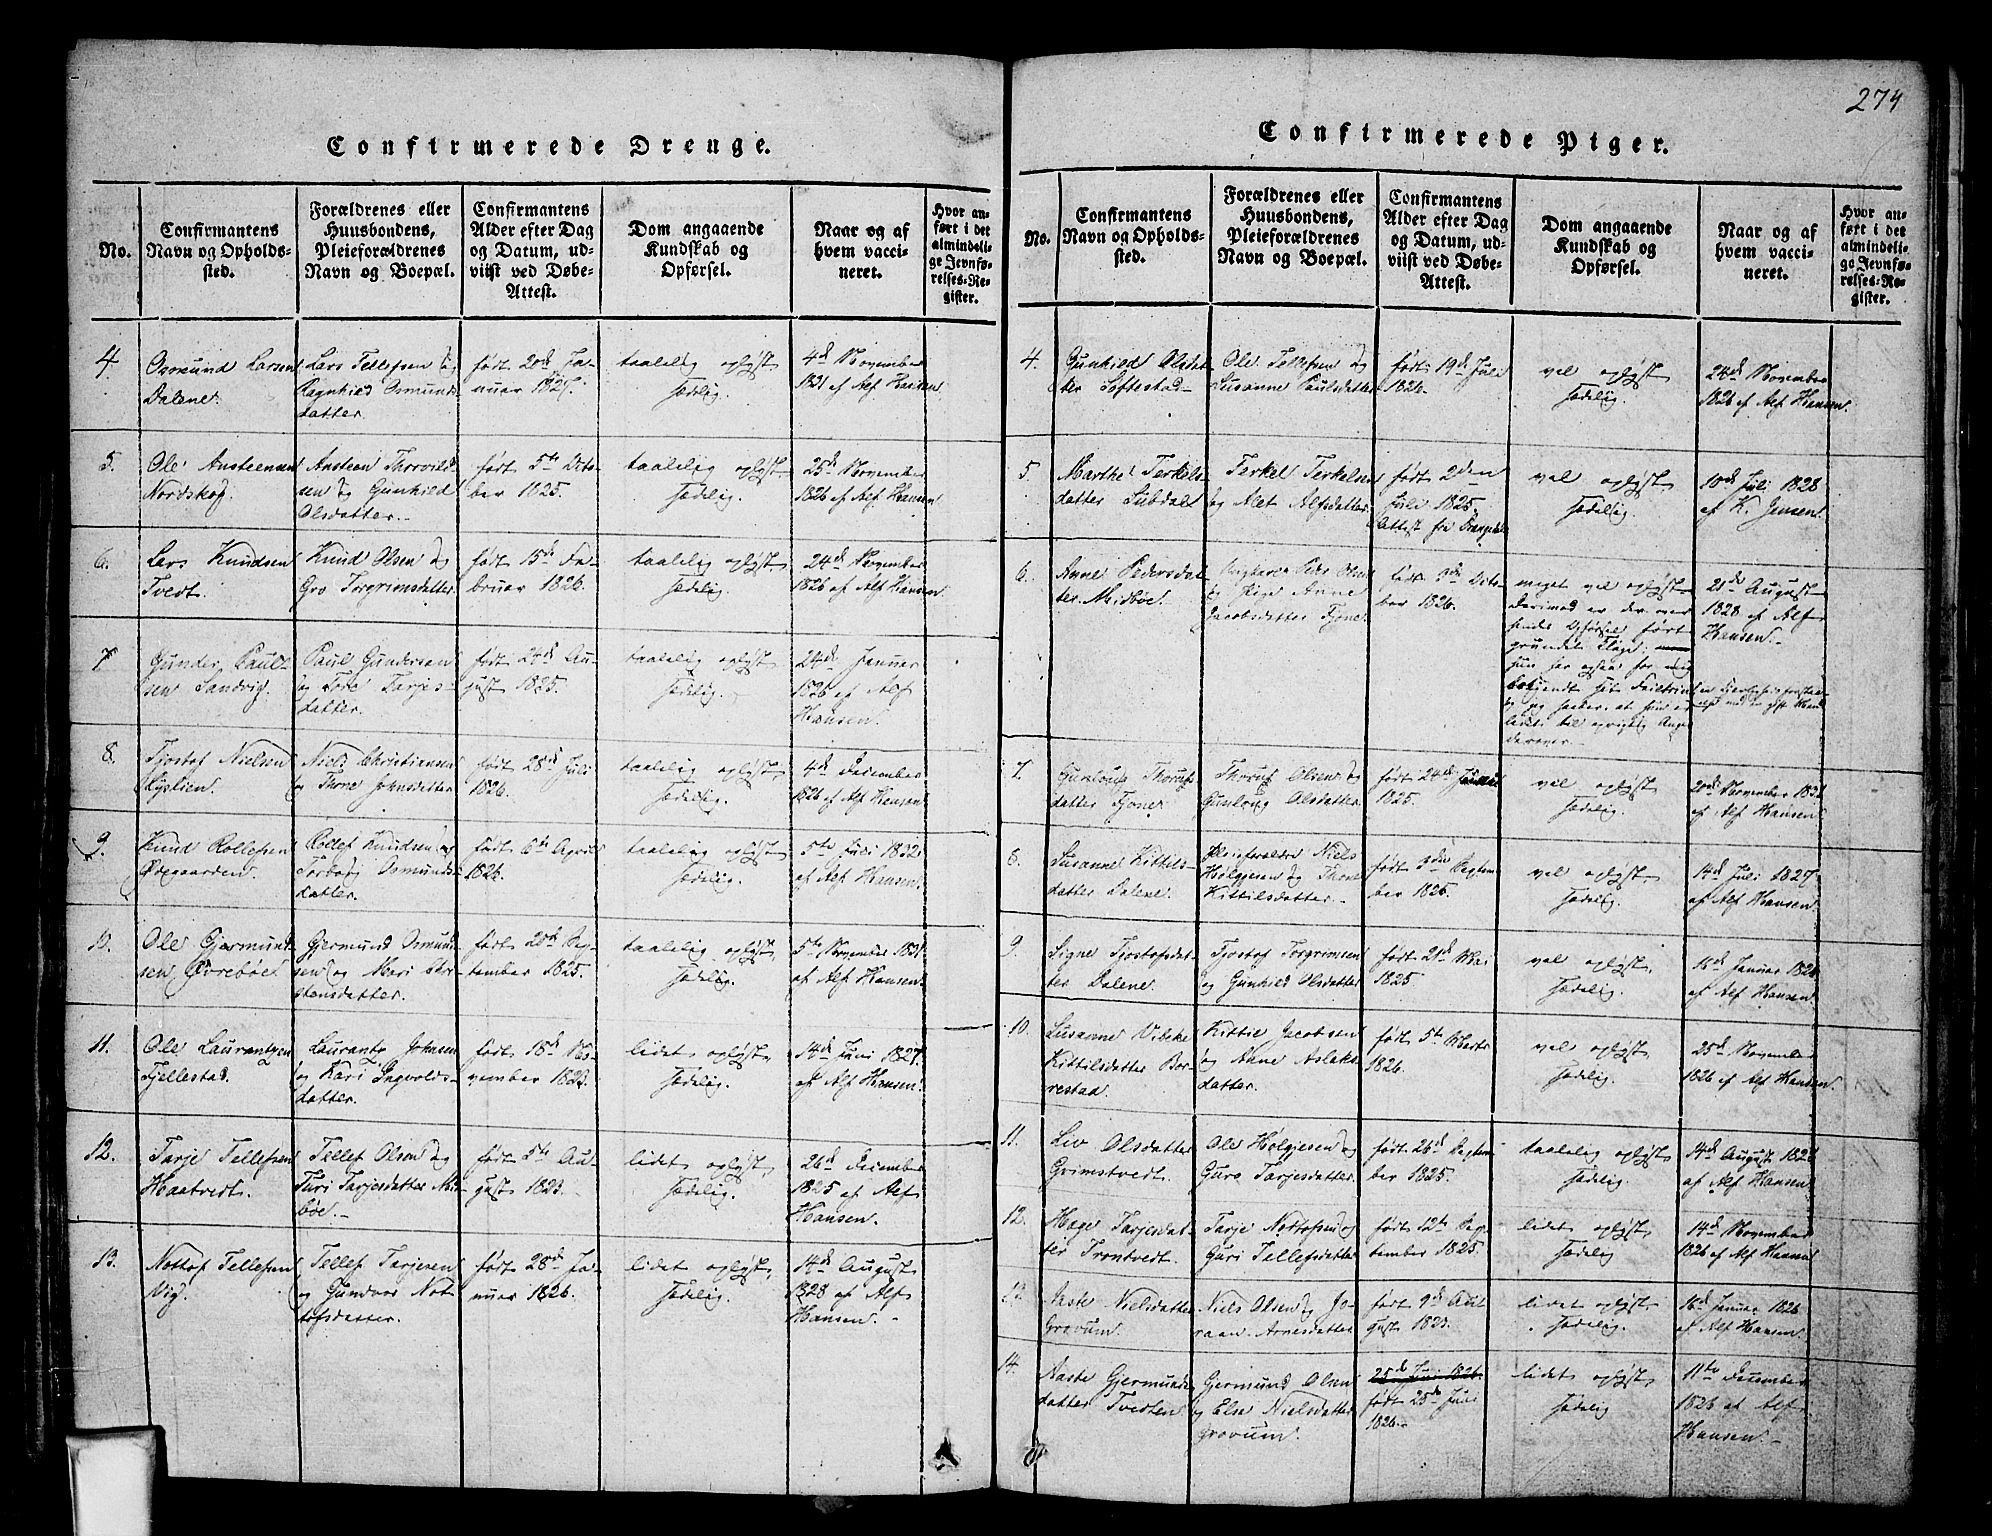 Confirmerede Drenge.
No.
Confirmantens
Navn og Opholds-
sted.
Forældrenes eller
Huusbondens,
Pleieforældrenes
Navn og Boepæl.
Confirmantens
Alder efter Dag
og Datum, ud-
viist ved Døbe-
Attest.
Dom angaaende
Kundskab og
Opførsel.
Naar og af
hvem vacci-
neret.
Hvor an-
ført i det
almindeli-
ge Jevnfø-
relses-Re-
gister.
4.
Osmund Larsen
Dalene.
Lars Tellefsen og
Ragnhild Osmunds-
datter.
født 20d Ja-
nuar 1827.
taalelig oplyst
sædelig.
4d November
1831 af Alf Hansen.
5.
Ole Ansteensen
Nordskog.
Ansteen Thorvild-
sen og Gunhild
Olsdatter.
født 5te Octo-
ber 1825.
taalelig oplyst
sædelig.
25d November
1826 af Alf Hansen.
6.
Lars Knudsen
Tvedt.
Knud Olsen og
Gro Torgrimsdatter
født 15de Fe-
bruar 1826.
taalelig oplyst
sædelig.
24d November
1826 af Alf Hansen.
7
Gunder Paul-
sen Sandvig.
Paul Gundersen
og Tore Tarjes-
datter.
født 24d Au-
gust 1825.
taalelig oplyst
sædelig.
24d Januar
1826 af Alf
Hansen.
8.
Tjostof Nielsen
Niels Christiansen
og Thone Johnsdatter
født 28d Juli
1826.
taalelig oplyst
sædelig.
4d December
1826 af Alf Hansen.
9.
Knud Rollefsen
Ødegaarden.
Rollef Knudsen og
Torbog Osmunds-
datter.
født 6te April
1826.
taalelig oplyst
sædelig.
5te Juli 1832
af Alf Hansen.
10.
Ole Gjermund-
sen Øvrebøe.
Gjermund Osmund-
sen og Mari
stensdatter.
født 20de Sep-
tember 1825.
taalelig oplyst
sædelig.
5te November 1831
af Alf Hansen.
11.
Ole Laurantzen
Fjellestad.
Laurantz Johnsen
og Kari Ingvolds-
datter.
født 18d No-
vember 1823.
lidet oplyst,
sædelig.
14d Juni 1827.
af Alf Hansen.
12.
Tarje Tellefsen
Haatvedt.
Tellef Olsen og
Turi Tarjesdatter Mid-
bøe.
født 5te Au-
gust 1823.
lidet oplyst
sædelig.
26d December
1825 af Alf
Hansen.
13.
Nottof Tellefsen
Vig.
Tellef Tarjesen
og Gundvor Not-
tofsdatter.
født 28de Ja-
nuar 1826.
lidet oplyst,
sædelig.
14d August
1828 af Alf
Hansen.
274
Confirmerede Piger.
No.
Confirmantens
Navn og Opholds-
sted.
Forældrenes eller
Huusbondens,
Pleieforældrenes
Navn og Boepæl.
Confirmantens
Alder efter Dag
og Datum, ud-
viist ved Døbe-
Attest.
Dom angaaende
Kundskab og
Opførsel.
Naar og af
hvem vacci-
neret.
Hvor an-
ført i det
almindeli-
ge Jevnfø-
relses-Re-
gister.
4.
Gunhild Olsdat-
ter Søftestad
Ole Tellefsen og
Susanne Paulsdatter
født 19de Juli
1826.
vel oplyst
sædelig.
24d November
1826 af Alf Hansen.
5.
Marthe Terkels-
datter Lübdal
Terkel Terkelsen
og Alet Alfsdatter.
født 2den
Juli 1825.
Attest fra Drangedal
vel oplyst
sædelig.
10de Juli 1828
af K. Jensen.
6.
Anne Pedersdat-
ter Midbøe.
Ungkarl Peder Olsen
og Pige Anne
Jacobsdatter Tjone
født 3die Octo-
ber 1826.
meget vel oplyst
derimod er der over
hendes Opførsel ført
grundet Klage;
hun har ogsaa for mig
bekjendt sit Feiltrin
og jeg haaber at hun er
ledet til oprigtig Anger
derover.
21de August
1828 af Alf
Hansen.
7.
Gunloug Thorufs-
datter Tjone
Thoruf Olsen og
Gunloug Olsdatter
født 24de Januar
1825.
vel oplyst
sædelig.
20de November 1831
af Alf Hansen.
8.
Susanne Kittels-
datter Dalene.
Pleieforældre Niels
Holgjesen og Thone
Kittilsdatter.
født 3die Septem-
ber 1825.
vel oplyst,
sædelig.
14d Juli 1827
af Alf Hansen.
9.
Signe Tjostofsdat-
ter Dalene.
Tjostof Torgrimsen
og Gunhild Olsdatter
født 21de Mai
1825.
vel oplyst,
sædelig.
16d Januar 1826
af Alf Hansen.
10.
Susanne Vibeke
Kittilsdatter Bor-
restad.
Kittil Jacobsen
og Anne Aslaks-
datter.
født 5te Marts
1826.
vel oplyst
sædelig.
25d November
1826 af Alf Hansen.
11.
Liv Olsdatter
Grimstvedt.
Ole Holgjesen og
Guro Tarjesdatter.
født 26de Septem-
ber 1825.
taalelig oplyst
sædelig.
14d August 1828
af Alf Hansen.
12.
Hæge Tarjesdat-
ter Trontvedt.
Tarje Nottofsen og
Guri Tellefsdatter
født 12te Sep-
tember 1825.
lidet oplyst
sædelig
14d November
1826 af Alf Hansen.
13.
Aaste Nielsdatter
Grovum.
Niels Olsen og Jo-
raan Arnesdatter
født 9d Au-
gust 1823.
lidet oplyst
sædelig.
16d Januar 1826
af Alf Hansen.
14.
Aaste Gjermunds-
datter Tvedten.
Gjermund Olsen
og Else Nielsdatter
Grovum.
25d Juni 1826.
født 25de Juni
1826.
lidet oplyst,
sædelig
11te December
1826 af Alf
Hansen.